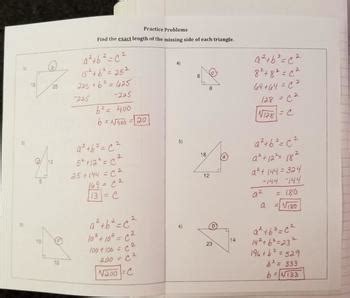 Practice Problems
Find the exact length of the missing side of each triangle.
a² + b² = c²
15² + b² = 25²
225 + b² = 625
-225 -225
b² = 400
b = √400 = 20
15
25
4)
a² + b² = c²
8² + 8² = c²
64 + 64 = c²
128 = c²
√128 = c
8
8
a² + b² = c²
5² + 12² = c²
25 + 144 = c²
169 = c²
13 = c
12
5
5)
a² + b² = c²
a² + 12² = 18²
a² + 144 = 324
-144 -144
a² = 180
a = √180
18
12
a² + b² = c²
10² + 10² = c²
100 + 100 = c²
200 = c²
√200 = c
10
10
a² + b² = c²
14² + b² = 23²
196 + b² = 529
b² = 333
b = √333
23
14